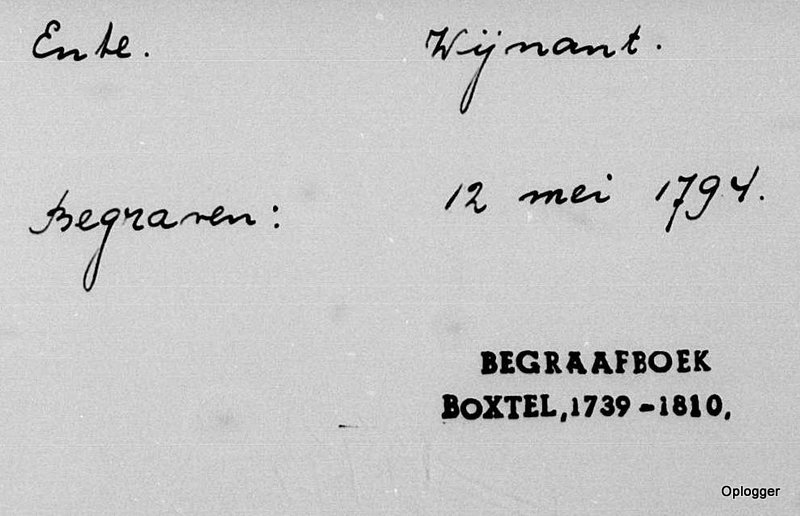 Ente. Wijnant.
Begraven: 12 mei 1794.
BEGRAAFBOEK
BOXTEL, 1739-1810,
Oplogger